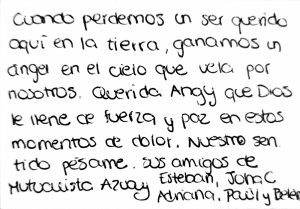 Cuando perdemos un ser querido
aquí en la tierra, ganamos un
ángel en el cielo que vela por
nosotros. Querida Angy que Dios
le llene de fuerza y paz en estos
momentos de dolor. Nuestro sen
tido pésame. Sus amigos de
Mutualista Azuay Esteban, Juan C
Adriana, Paul y Belén